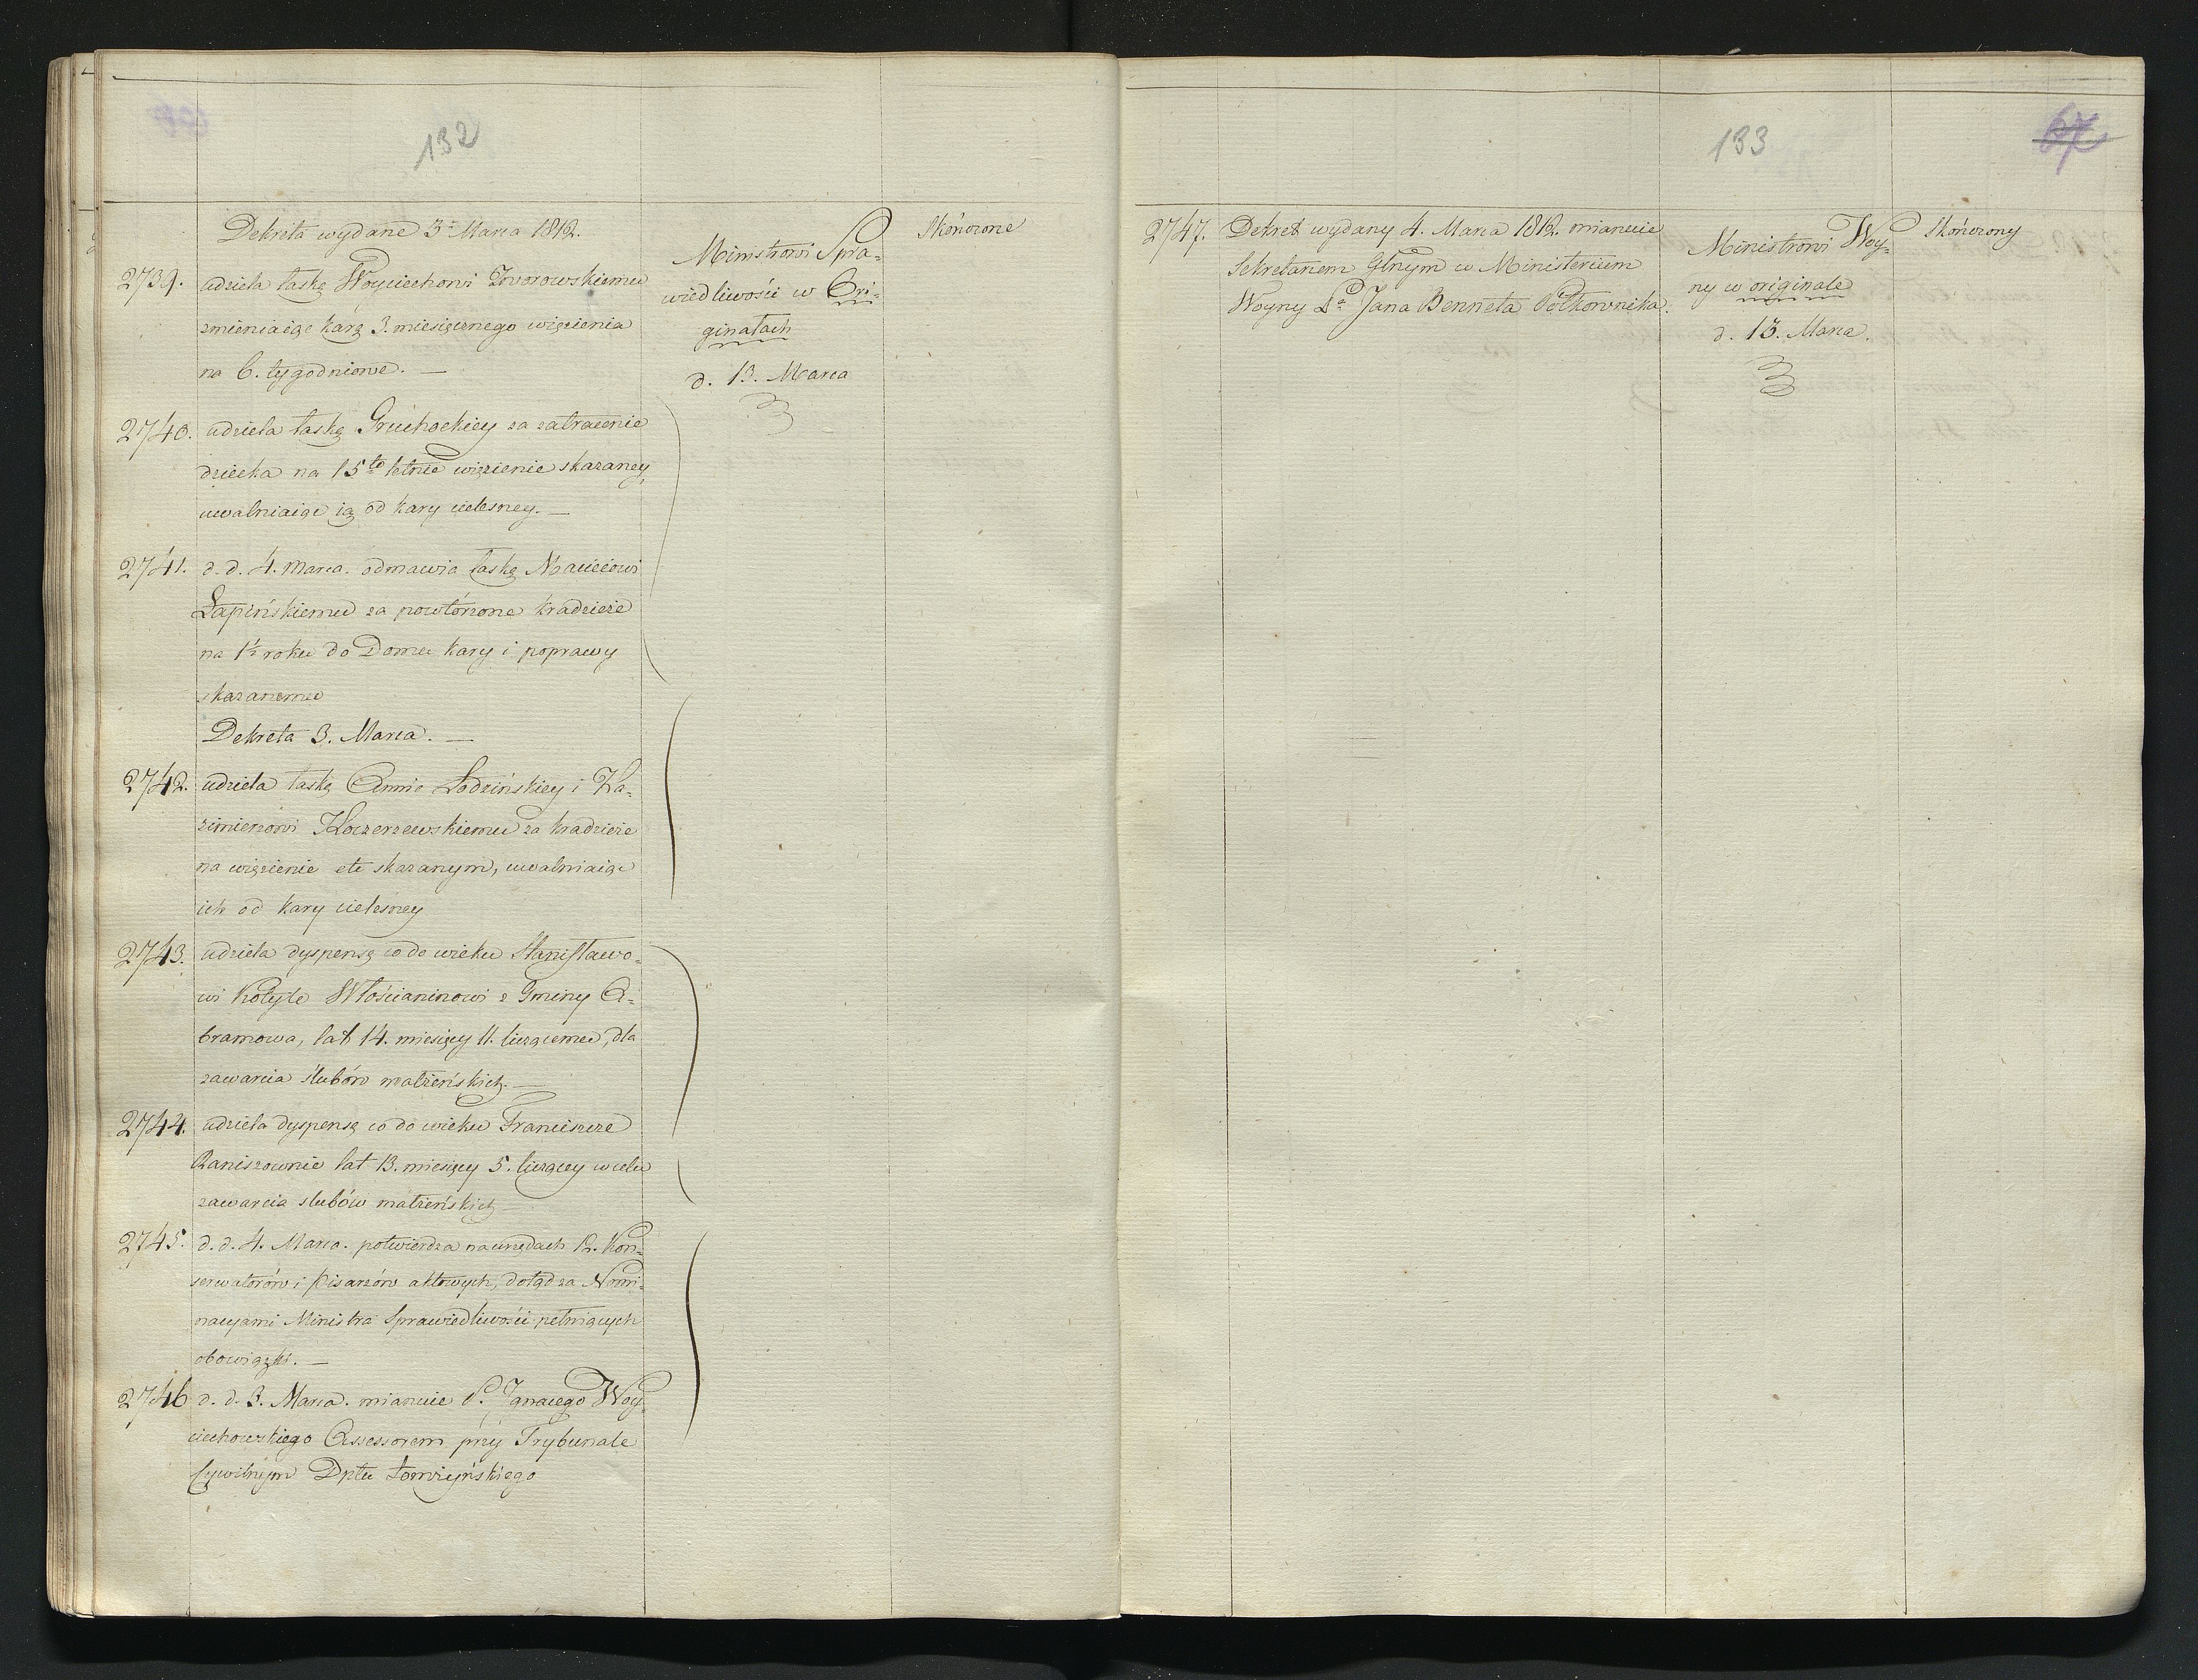 132
Dekreta wydane 3º Marca 1812.
2739. udziela łaskę Woyciechowi Zworowskiemu
zmieniaiąc karę 3. miesięcznego więzienia
na 6. tygodniowe. —
Ministrowi Spra=
wiedliwości w Ori=
ginałach
d. 13. Marca
Skończone
2740. udziela łaskę Gruchockiey za zatracenie
dziecka na 15to letnie więzienie skazaney,
uwalniaiąc ią od kary cielesney. —
2741. d. d. 4. Marca. odmawia łaskę Macieiowi
Łapińskiemu za powtórzone kradzieże
na 1½ roku do Domu kary i poprawy
skazanemu
Dekreta 3. Marca. —
2742. udziela łaskę Annie Łodzińskiey i Ka=
zimierzowi Koczerzewskiemu za kradzieże
na więzienie etc skazanym, uwalniaiąc
ich od kary cielesney
2743. udziela dyspensę co do wieku Stanisławo=
wi Kotyle Włościaninowi z Gminy A=
bramowa, lat 14. miesięcy 11. liczącemu, dla
zawarcia ślubów małżeńskich. —
2744. udziela dyspensę co do wieku Franciszce
Raniszownie lat 13. miesięcy 5. liczącey w celu
zawarcia slubów małżeńskich —
2745. d. d. 4. Marca. potwierdza na urzędach 12. Kon=
serwatorów i Pisarzów aktowych, dotąd za Nomi=
nacyami Ministra Sprawiedliwości pełniących
obowiązki. —
2746 d. d. 3. Marca. mianuie P. Ignacego Woy=
ciechowskiego Assessorem przy Trybunale
Cywilnym Dptu Łomżyńskiego
133
67
2747. Dekret wydany 4. Marca 1812. mianuie
Sekretarzem Głnym w Ministerium
Woyny Pa Jana Benneta Półkownika.
Ministrowi Woy=
ny w originale
d. 13. Marca.
Skończony